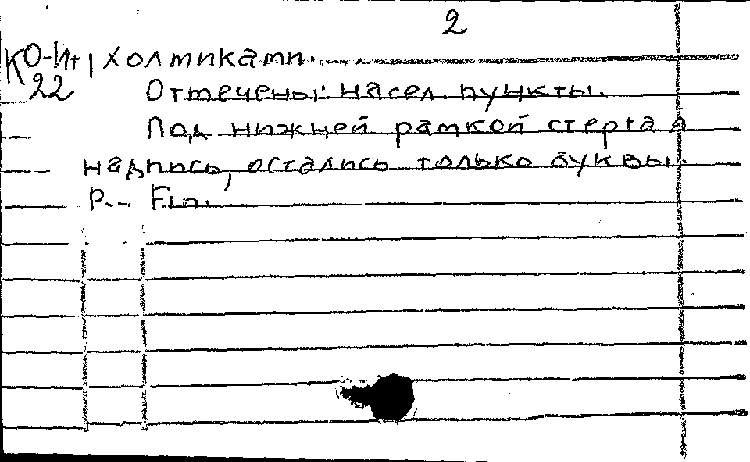 2
КО-Ит
22
холмиками.
Отмечены: насел. пункты.
Под нижней рамкой стерта
надпись, остались только буквы:
P... Fin.